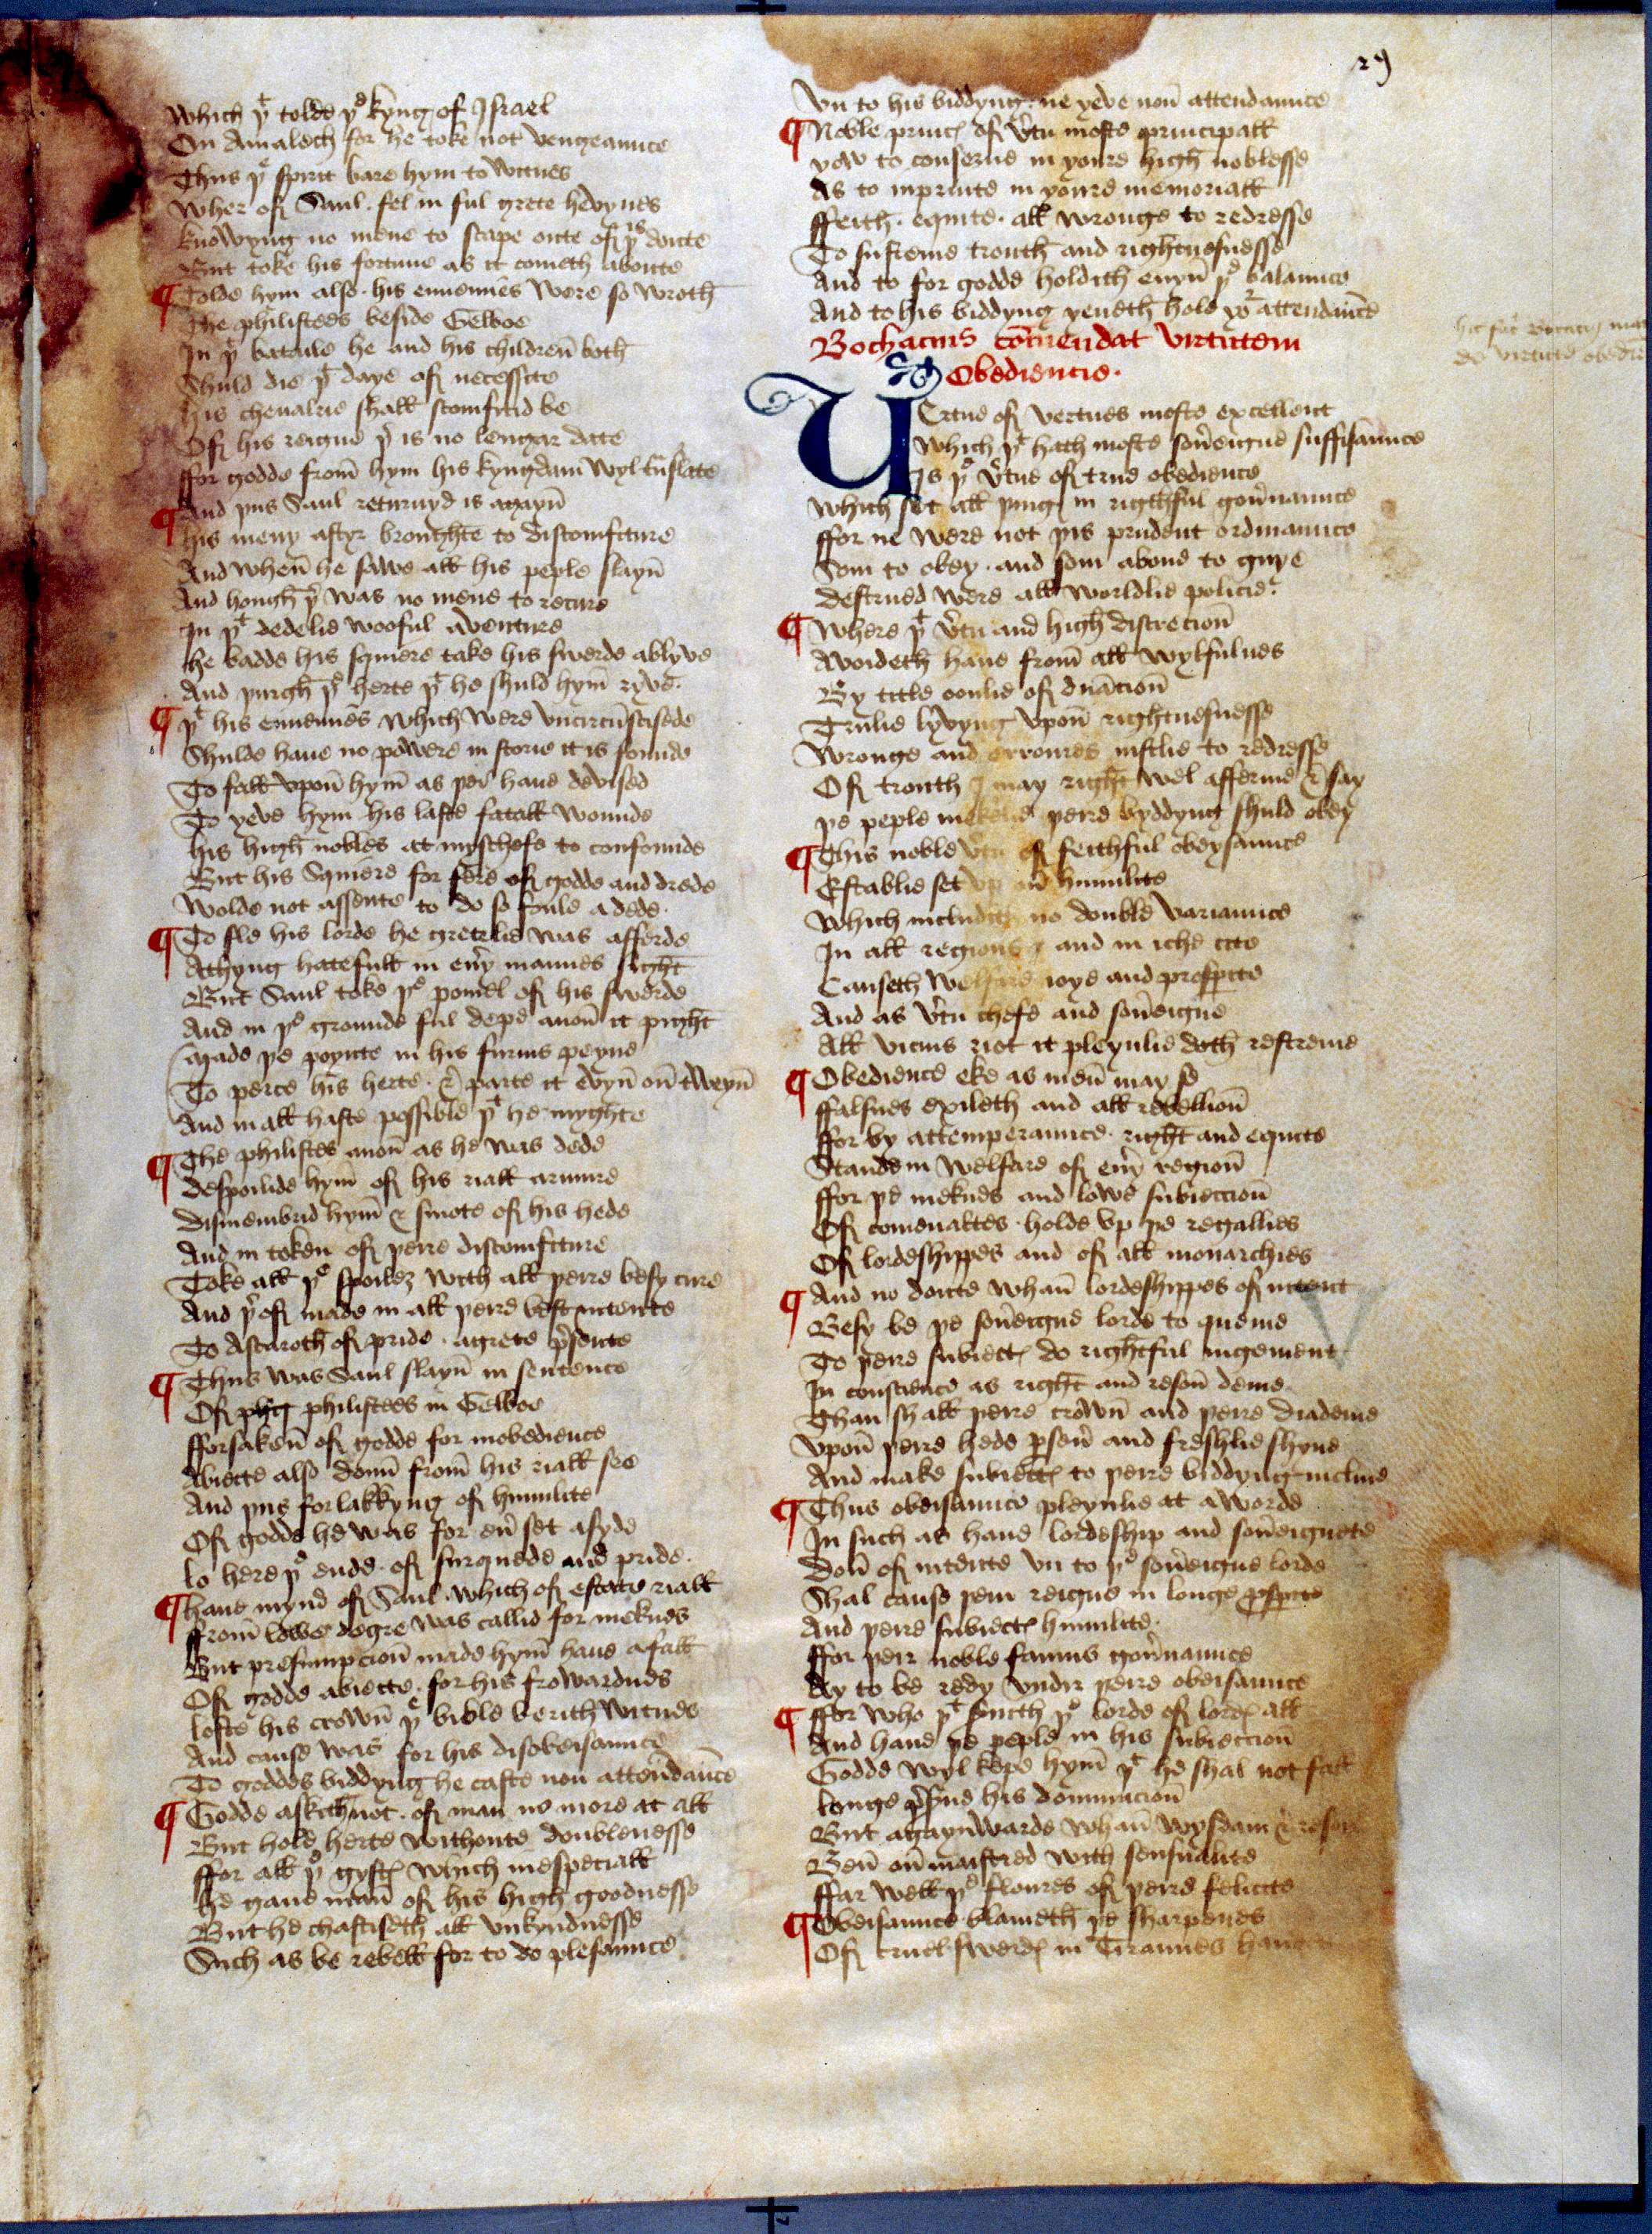 29
Which þᵗ tolde þᵉ kyng of Israel
On Amalech for he toke not vengeaunce
Thus þᵉ spirit bare hym to witnes
Wher of Saul . fel in ful grete hevynes
knowyng no mene to scape oute of þⁱˢ doute
But toke his fortune as it cometh aboute
¶ Tolde hym also . his ennemies were so wroth
The philistees beside Gelboe
In þᵗ bataile he and his childreñ both
Shuld die þᵗ daye of necessite
his chevalrie shall scomfitid be
Of his reigne þʳ is no lengar date
ffor godde from̄ hym his kyngdam wyl tñslate
¶ And þus Saul returnyd is agayñ
his meny aftyr broughte to discomfiture
And wheñ he sawe all his peple slayñ
And hough þʳ was no mene to recure
In þᵗ dedelie wooful aventure
he badde his squiere take his swerde ablyve
And þurgh þᵉ herte þᵗ he shuld hym̄ ryve .
¶ þᵗ his ennemies which were vncircūscisede
Shulde haue no powere in storie it is founde
To fall vpoñ hym̄ as þei haue devised
To yeve hym his laste fatall wounde
his high nobles at myschefe to confounde
But his Squiere for fere of godde and drede
Wolde not assente to do so foule a dede .
¶ To sle his lorde he gretelie was afferde
Athyng hatefull in eūy mannes sight
But Saul toke þᵉ pomel of his swerde
And in þᵉ grounde ful depe anoñ it pight
Made þe poynte in his furius peyne
To perce his herte . & parte it evyñ oñ tweyñ
And in all haste possible þᵗ he myghte
¶ The philistes anoñ as he was dede
despoilide hym̄ of his riall armure
dismembrid hym̄ & smote of his hede
And in token of þeire discomfiture
Toke all þᵉ spoilez with all þeire besy cure
And þʳof made in all þeire best intente
To Astaroth of pride . a grete p̄sente
¶ Thus was Saul slayñ in sentence
Of philistees in Gelboe
fforsakeñ of godde for inobedience
Abiecte also doun̄ from̄ his riall see
And þus for lakkyng of humilite
Of godde he was for eū set asyde
lo here þᵉ ende . of surquede and pride .
¶ haue mynd of Saul . which of estate riall
ffrom̄ lowe degre was callid for meknes
But presumpcioñ made hym̄ haue a fall
Of godde abiecte . for his frowardnes
loste his crowñ þᵉ bible berith witnes
And cause was for his disobeisaunce
To goddes biddyng he caste non attendāūce
¶ Godde askith not . of man no more at all
But hole herte withoute doublenesse
ffor all þᵉ gyftꝭ which inespeciall
he gaue mañ of his high goodnesse
But he chastiseth all vnkyndnesse
Such as be rebell for to do plesaunce
Vn to his biddyng . ne yeve noñ attendaunce
¶ Noble princꝭ of v̄tu moste principall
yow to conserue in youre high noblesse
As to inprinte in youre memoriall
ffeith . equite . all wronge to redresse
To susteine trouth and rightuesnesse
And to for godde holdith evyñ þᵉ balaunce
And to his biddyng yeueth hole yoʳ attendāūce
Bochacius cōmendat virtutem
Obediencie .
Vertue of vertues moste excellent
Which þᵗ hath moste soūeigne suffisaunce
Is þᵉ v̄tue of true obedience
Which set all þing in rightful goūnaunce
ffor ne were not þis prudent ordinaunce
Som to obey . and som abone to guye
destrued were all worldlie policie .
¶ Where þᵗ v̄tu and high discrecioñ
Avoideth haue from̄ all wylfulnes
By title oonlie of duācioñ
Trulie lyvyng vpoñ rightuesnesse
Wronge and erroures iustlie to redresse
Of trouth I may right wel afferme & say
þe peple mekelie þeire byddyng shuld obey
¶ This noble v̄tu of feithful obeysaunce
Establie set vp on humilite
Which includith no double variaunce
In all regions and in iche cite
Causeth welfare ioye and prosperite
And as v̄tu chefe and soūeigne
All vicius riot it pleynlie doth restreine
¶ Obedience eke as meñ may se
ffalsnes exileth and all rebellioñ
ffor by attemperaunce . right and equite
Stande in welfare of eūy regioñ
ffor þe meknes and lowe subieccioñ
Of comenaltes . holde vp þe regallies
Of lordeshippes and of all monarchies
¶ And no doute whañ lordeshippes of intent
Besy be þe soūeigne lorde to queme
To þeire subiectꝭ do rightful iugement
In conscience as right and resoñ deme
Than shall þeire crowñ and þeire diademe
Vpoñ þeire hede p̄seū and freshlie shyne
And make subiectꝭ to þeire biddyng incline
¶ Thus obeisaunce pleynlie at a worde
In such as haue lordeship and soūeignete
doñ of intente vn to þᵉ soūeigne lorde
Shal cause þem reigne in longe
And þeire subiectꝭ humilite .
ffor þeir noble famus goūnaunce
Ay to be redy vndir þeire obeisaunce
¶ ffor who þᵗ sūith þᵉ lorde of lordꝭ all
And haue þe peple in his subieccioñ
Godde wyl kepe hym̄ þᵗ he shal not fall
longe p̄sue his dominacioñ
But agaynwarde whañ wysdam &
Beñ oūmaistred with sensualite
ffar well þᵉ floures of þeire felicite
¶ Obeisaunce blameth þe sharpenes
Of cruel swerdꝭ in Tirannes